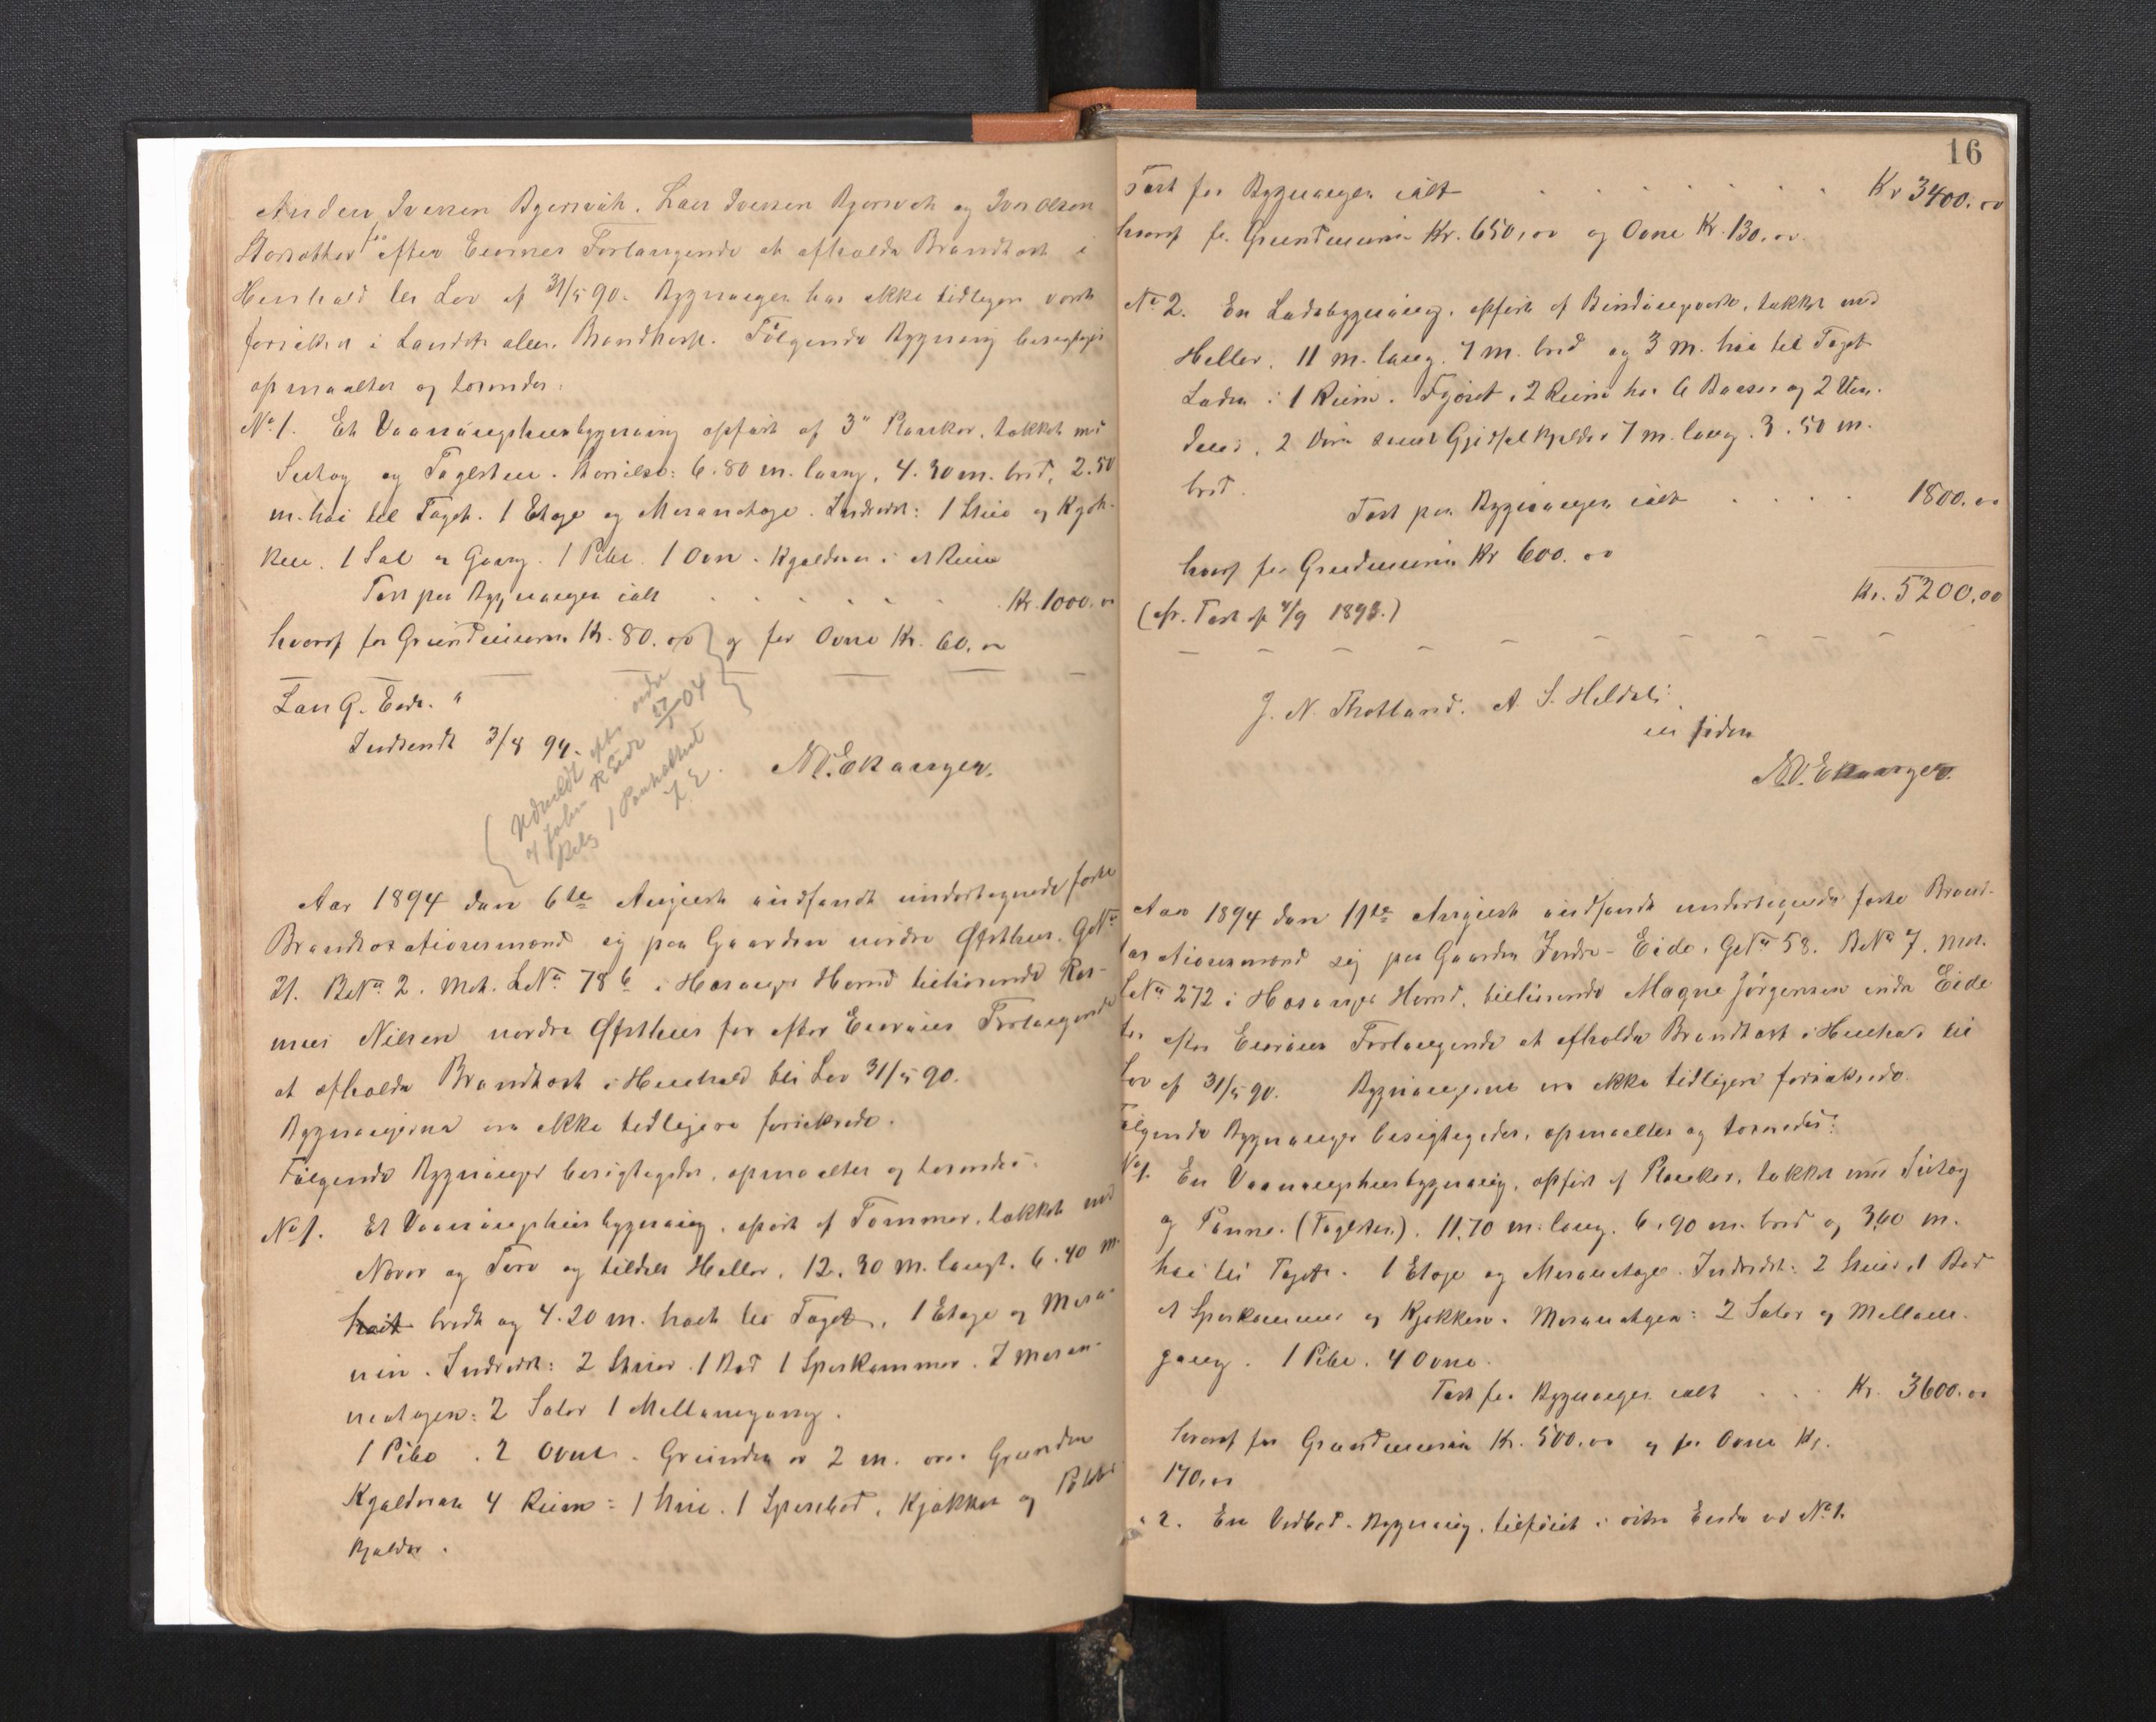 Anders Iversen Bjørsvik, Lars Iversen Bjørsvik og Iver Olsen
for efter Eiernes Forlangende at afholde Brandtaxt i
Henhold til Lov af 31/5 90. Bygningen har ikke tidligere været
forsikret i Landets alm. Brandkasse. Følgende Bygning besigtiges
opmaaltes og taxeredes:
No 1. Et Vaaningshusbygning opført af 3" Planker, tækket med
Sutag og Taglsten. Størrelse: 6.80 m. lang, 4.30 m. bred, 2.50
m. høi til Taget. 1 Etage og Mesanetage. Indredet: 1 Stue og Kjøk-
ken. 1 Sal og Gang. 1 Pibe. 1 Ovn. Kjælderen i et Rum
Taxt paa Bygningen ialt . . . . . . Kr. 1000.00
hvoraf for Grundmuren Kr. 80.00 og for Ovne Kr. 60.00
Lars G. Eide "
Indsendt 3/8 94.
N. O. Ekanger.
Udmeldt efter
John R Eide 04
L. E.
Aar 1894 den 6te August indfandt undertegnede faste
Brandtaxationsmænd sig paa Gaarden nordre Øfsthus. GNo
21. BNo 2. Mat. LNo 78 b i Hosanger Herred tilhørende Ras-
mus Nilsen nordre Øfsthus for efter Eierens Forlangende
at afholde Brandtaxt i Henhold til Lov 31/5 90.
Bygningerne ere ikke tidligere forsikrede.
Følgende Bygninger besigtigedes, opmaaltes og taxeredes:
No 1. Et Vaaningshusbygning, opført af Tømmer, tækket med
Næver og Torv og tildels Heller, 12.30 m. langt, 6.40 m.
høit bredt og 4.20 m. høit til Taget. 1 Etage og Mesa-
nin. Indredet: 2 Stuer. 1 Bod 1 Spiskammer. I Mesan-
netagen: 2 Saler 1 Mellemgang.
1 Pibe. 2 Ovne. Grunden er 2 m. over Grunden
Kjælderen 4 Rum = 1 Stue. 1 Spisebod, Kjøkken og Potet
Kjælder.
16
Taxt for Bygningen ialt . . . . . . . Kr 3400.00
hvoraf for Grundmuren Kr. 650,00 og Ovne Kr. 130,00.
No 2. En Ladebygning, opført af Bindingsverk, tækket med
Heller, 11 m. lang. 7 m. bred og 3 m. høi til Taget
Laden i 1 Rum. Fjøset i 2 Rum har 6 Baaser og
2 Døre samt Gjødselkjælder 7 m. lang. 3.50 m.
bred.
Taxt paa Bygningen ialt . . . . 1800.00
hvoraf for Grundmuren Kr 600.00
Kr. 5200,00
(cfr. Taxt af 4/9 1893.)
J. N. Tholland. A S. Heldal
N. O. Ekanger.
Aar 1894 den 11te August indfandt undertegnede faste Brand-
taxationsmænd sig paa Gaarden Indre-Eide, GNo 58. BNo 7. Mat.
LNo 272 i Hosanger Herred, tilhørende Magne Jørgensen indre Eide
for efter Eierens Forlangende at afholde Brandtaxt i Henhold til
Lov af 31/5 90. Bygningerne ere ikke tidligere forsikrede.
Følgende Bygninger besigtigedes, opmaaltes og taxeredes:
No 1. En Vaaningshusbygning, opført af Planker, tækket med Sutag
og Panner (Taglsten). 11.70 m. lang. 6.90 m. bred og 3,60 m.
høi til Taget. 1 Etage og Mesanetage. Indredet: 2 Stuer, 1 Bod
et Spiskammer og Kjøkken. Mesanetagen: 2 Saler og Mellem-
gang. 1 Pibe. 4 Ovne.
Taxt for Bygningen ialt . . . Kr. 3600.00
hvoraf for Grundmuren Kr. 500.00 og for Ovne Kr.
170,00
2. En Vedbod-Bygning, tilføiet i østre Ende ved No 1.